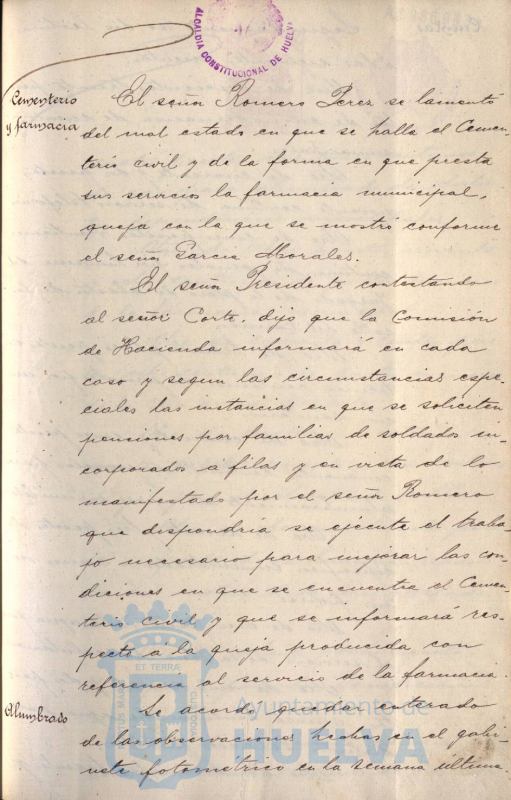 ALCALDIA CONSTITUCIONAL DE HUELVA
Cementerio
y farmacia
El señor Romero Perez se lamentó
del mal estado en que se halla el Cemen-
terio civil y de la forma en que presta
sus servicios la farmacia municipal,
queja con la que se mostró conforme
el señor Garcia Morales.
El señor Presidente contestando
al señor Corte, dijo que la Comisión
de Hacienda informará en cada
caso y segun las circunstancias espe-
ciales las instancias en que se soliciten
pensiones por familias de soldados in-
corporados a filas y en vista de lo
manifestado por el señor Romero
que dispondría se ejecute el traba-
jo necesario para mejorar las con-
diciones en que se encuentra el Cemen-
terio civil y que se informará res-
pecto a la queja producida con
referencia al servicio de la farmacia.
Alumbrado
Se acordó quedar enterado
de las observaciones hechas en el gabi-
nete fotométrico en la semana última.
ET TERRÆ
Ayuntamiento de
HUELVA